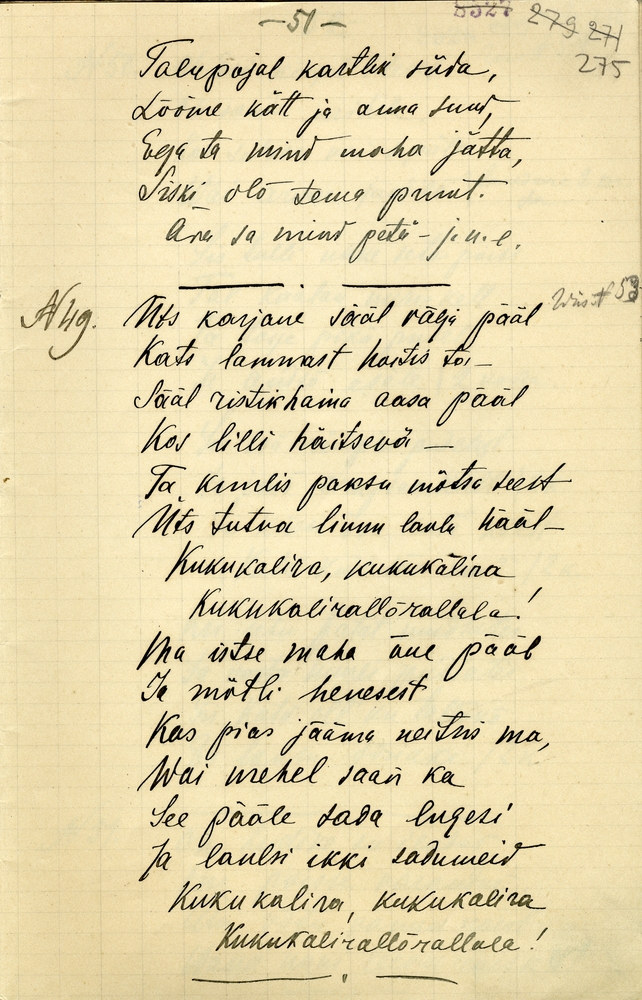 — 51 —
5327 279 271
275
Talupojal kartlik süda,
Lööme kätt ja anna suud,
Ega ta mind maha jätta,
Siski olõ tema pruut.
Ära sa mind petä - j.n.e.
N 49.
Wiis N 53
Üts karjane sääl välja pääl
Kats lammast hoitis ta —
Sääl ristikhaina aasa pääl
Kos lilli häitsevä —
Ta kuulis paksu mõtsa seest
Üts tutva linnu laulu hääl —
Kukukalira, kukukalira
Kukukalirallõrallala!
Ma istse maha äue pääl
Ja mõtli henesest
Kas pias jääma neitsis ma,
Wai mehel saan ka
See pääle sada lugesi
Ja laulsi ikki sadumeid
Kukukalira, kukukalira
Kukukalirallõrallala!